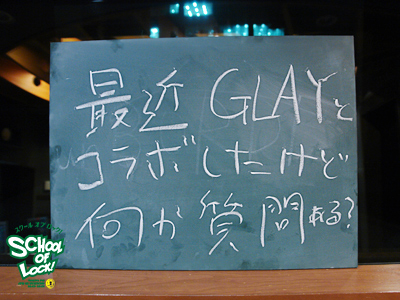 最近 GLAYと
コラボしたけど
何か質問ある?
スクール オブ ロック!
SCHOOL
OF
LOCK!